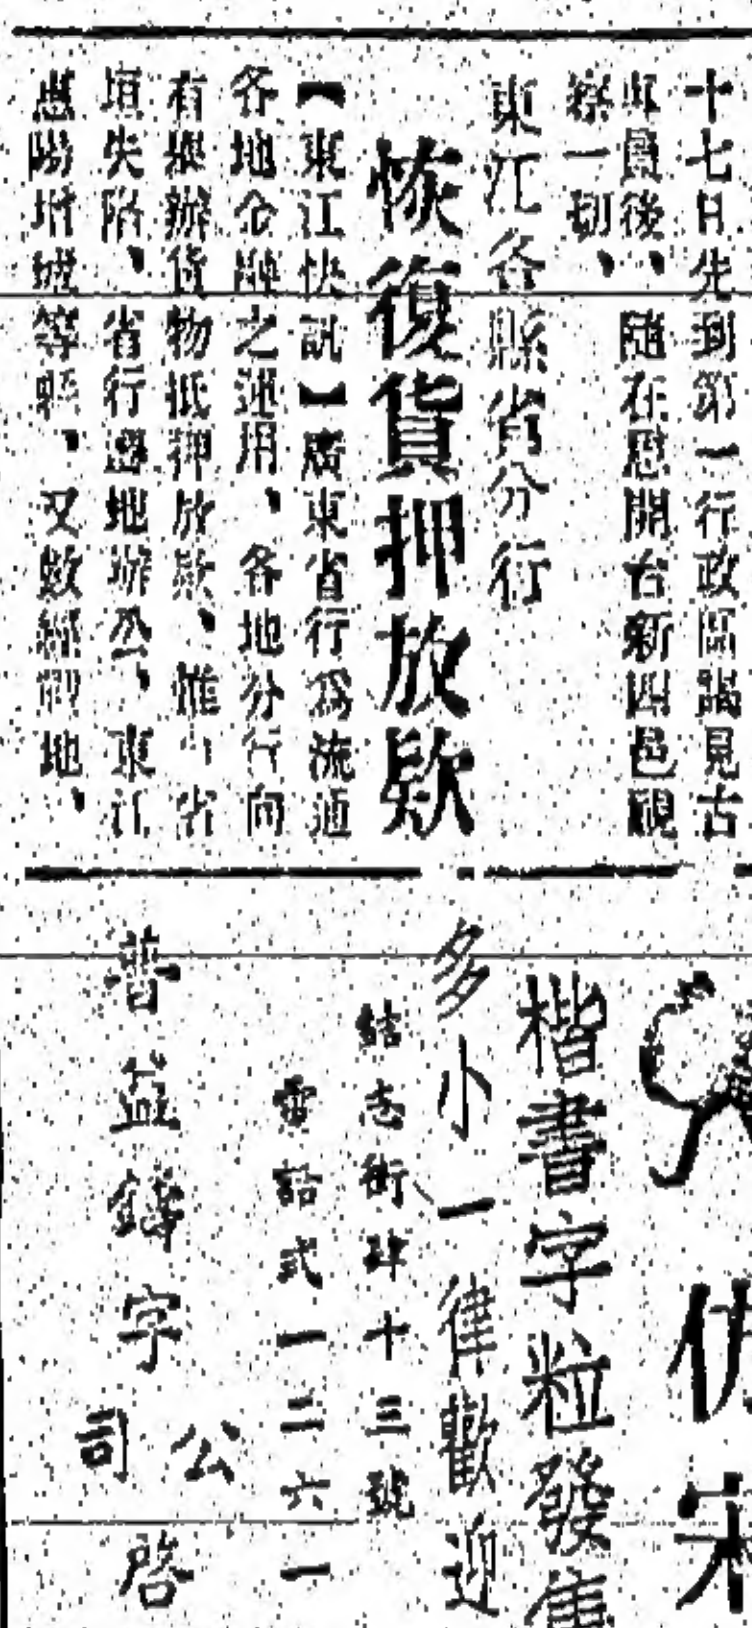 十七日先到第一行政區謁見古
專員後、隨在恩開台新四邑視
察一切、
東江各縣省分行
恢復貨押放欵
【東江快訊】廣東省行爲流通
各地金融之運用、各地分行向
有舉辦貨物抵押放欵、惟 省
垣失陷、省行遷地辦公、東江
惠陽增城等縣、又數經戰地、
仿宋
楷書字粒發售
多小一律歡迎
結志街肆十三號
電話式一二六一
普益鑄字公司啓